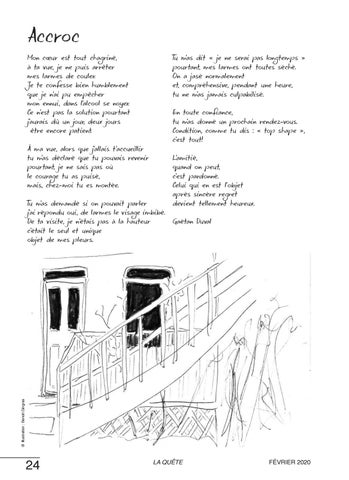 Accroc
Mon cœur est tout chagriné,
à ta vue, je ne puis arrêter
mes larmes de couler.
Je te confesse bien humblement
que je n'ai pu empêcher
mon ennui, dans l'alcool se noyer.
Ce n'est pas la solution pourtant
j'aurais dû un jour, deux jours
être encore patient.
À ma vue, alors que j'allais t'accueillir
tu m'as déclaré que tu pouvais revenir
pourtant, je ne sais pas où
le courage tu as puisé,
mais, chez-moi tu es montée.
Tu m'as demandé si on pouvait parler
j'ai répondu oui, de larmes le visage imbibé.
De ta visite, je n'étais pas à la hauteur
c'était le seul et unique
objet de mes pleurs.
Tu m'as dit « je ne serai pas longtemps »
pourtant, mes larmes ont toutes séché.
On a jasé normalement
et, compréhensive, pendant une heure,
tu ne m'as jamais culpabilisé.
En toute confiance,
tu m'as donné un prochain rendez-vous.
Condition, comme tu dis : « top shape »,
c'est tout!
L'amitié,
quand on peut,
c'est pardonné.
Celui qui en est l'objet
après sincère regret
devient tellement heureux.
Gaétan Duval
© Illustration : Benoît Gingras
24
LA QUÊTE
FÉVRIER 2020